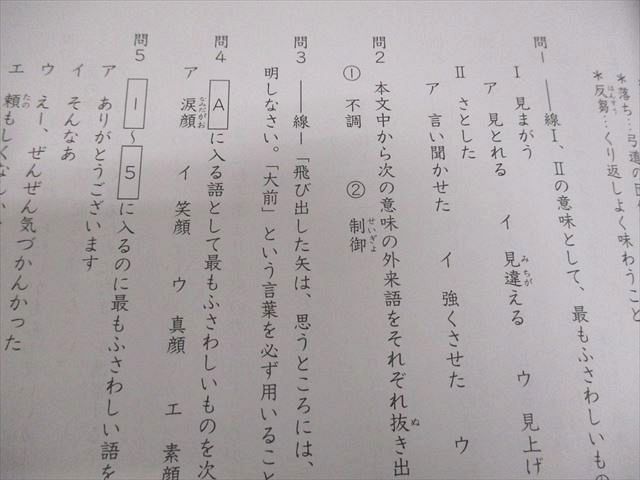 ＊落ち…弓道の
＊反芻…くり返しよく味わうこと
はんすう
問1 ――線Ⅰ、Ⅱの意味として、最もふさわしいもの
Ⅰ 見まがう
ア 見とれる イ 見違える ウ 見上げ
みちが
Ⅱ さとした
ア 言い聞かせた イ 強くさせた ウ
問2 本文中から次の意味の外来語をそれぞれ抜き出
ぬ
① 不調 ② 制御
せいぎょ
問3 ――線1「飛び出した矢は、思うところには、
明しなさい。「大前」という言葉を必ず用いること
問4 Aに入る語として最もふさわしいものを次
ア 涙顔 イ 笑顔 ウ 真顔 エ 素顔
なみだがお
問5 1～5に入るのに最もふさわしい語を
ア ありがとうございます
イ そんなあ
ウ えー、ぜんぜん気づかんかった
エ 頼もしくない
たの